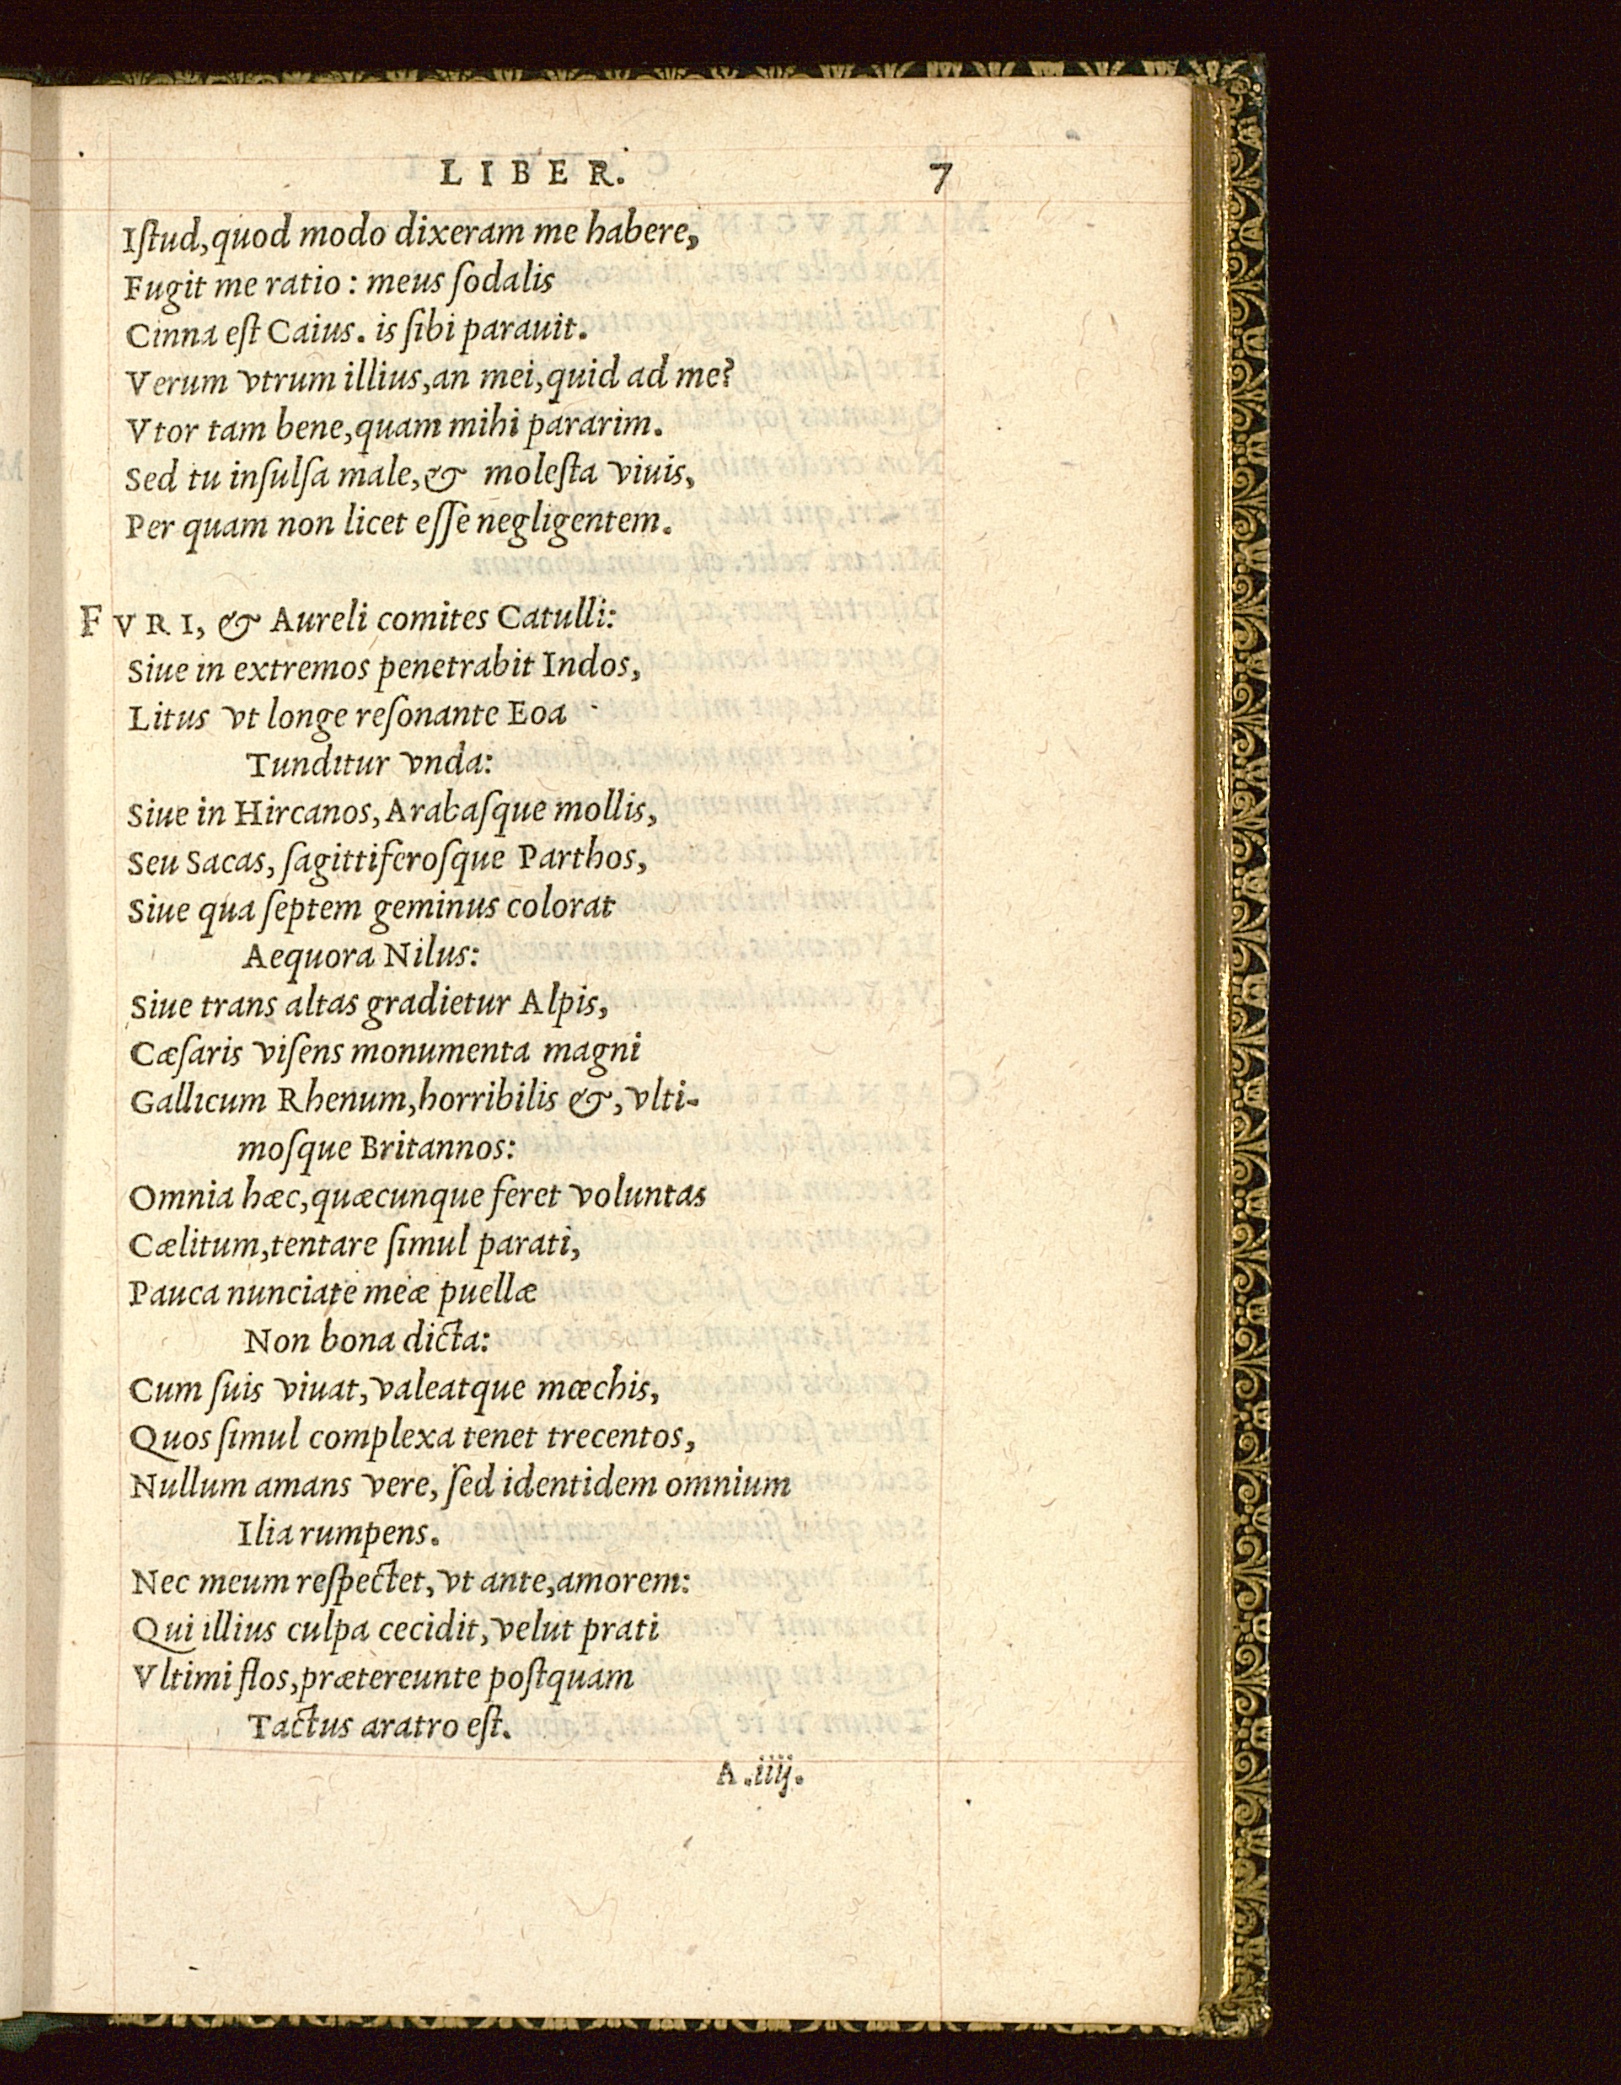 LIBER. 7
Iſtud, quod modo dixeram me habere,
Fugit me ratio: meus ſodalis
Cinna eſt Caius. is ſibi parauit.
Verum vtrum illius, an mei, quid ad me?
Vtor tam bene, quam mihi pararim.
Sed tu inſulſa male, & moleſta viuis,
Per quam non licet eſſe negligentem.
FVRI, & Aureli comites Catulli:
Siue in extremos penetrabit Indos,
Litus vt longe reſonante Eoa
Tunditur vnda:
Siue in Hircanos, Arabaſque mollis,
Seu Sacas, ſagittiferoſque Parthos,
Siue qua ſeptem geminus colorat
Aequora Nilus:
Siue trans altas gradietur Alpis,
Cæſaris viſens monumenta magni
Gallicum Rhenum, horribilis &, vlti-
moſque Britannos:
Omnia hæc, quæcunque feret voluntas
Cælitum, tentare ſimul parati,
Pauca nunciate meæ puellæ
Non bona dicta:
Cum ſuis viuat, valeatque mœchis,
Quos ſimul complexa tenet trecentos,
Nullum amans vere, ſed identidem omnium
Ilia rumpens.
Nec meum reſpectet, vt ante, amorem:
Qui illius culpa cecidit, velut prati
Vltimi flos, prætereunte poſtquam
Tactus aratro eſt.
A.iiij.